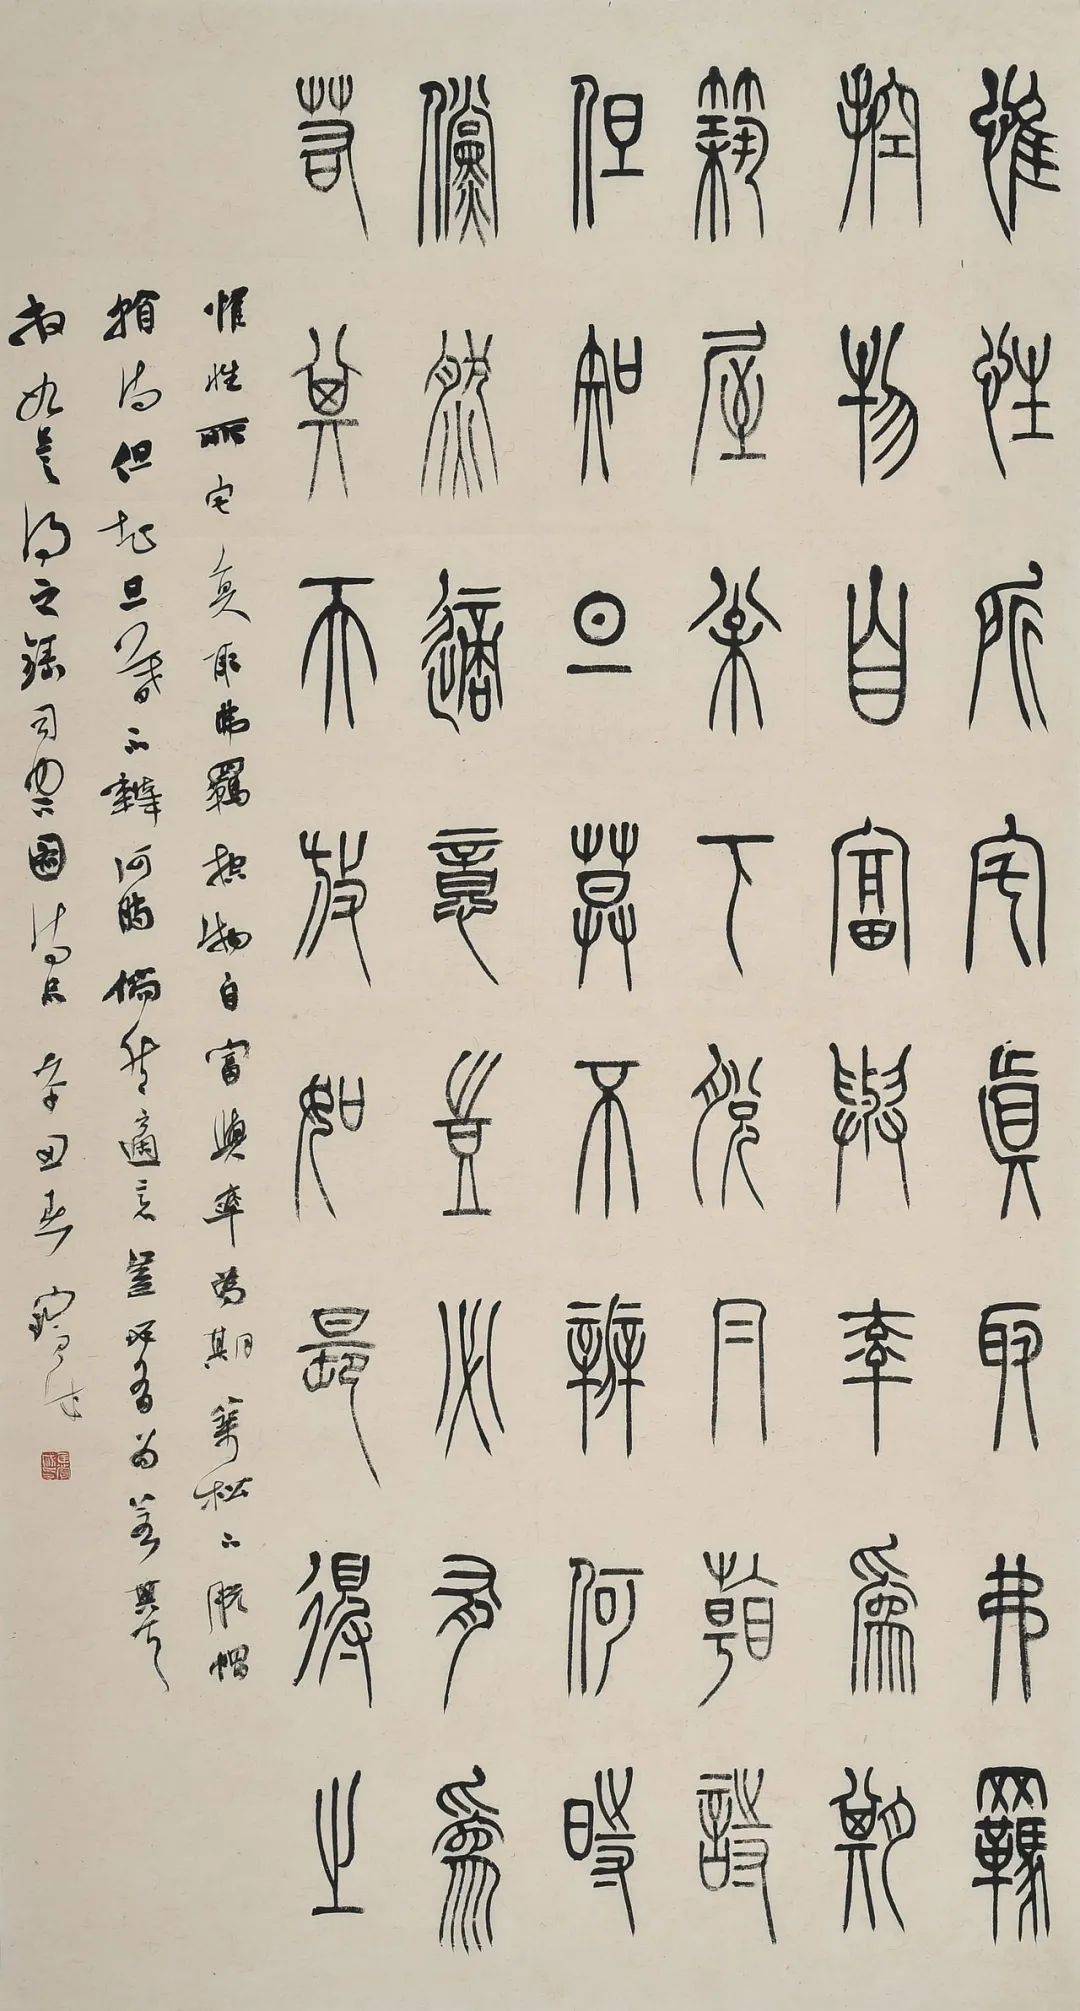 惟性所宅真取弗羈
控物自富與率爲期
築屋松下脫冃看詩
但知旦暮不辨何時
儻然適意豈必有爲
若其天放如是得之
惟性所宅真取弗羈控物自富與率爲期築松下脫帽
看詩但知旦暮不辨何時倘然適意豈必有爲若其天
放如是得之錄司空圖詩品 辛丑春